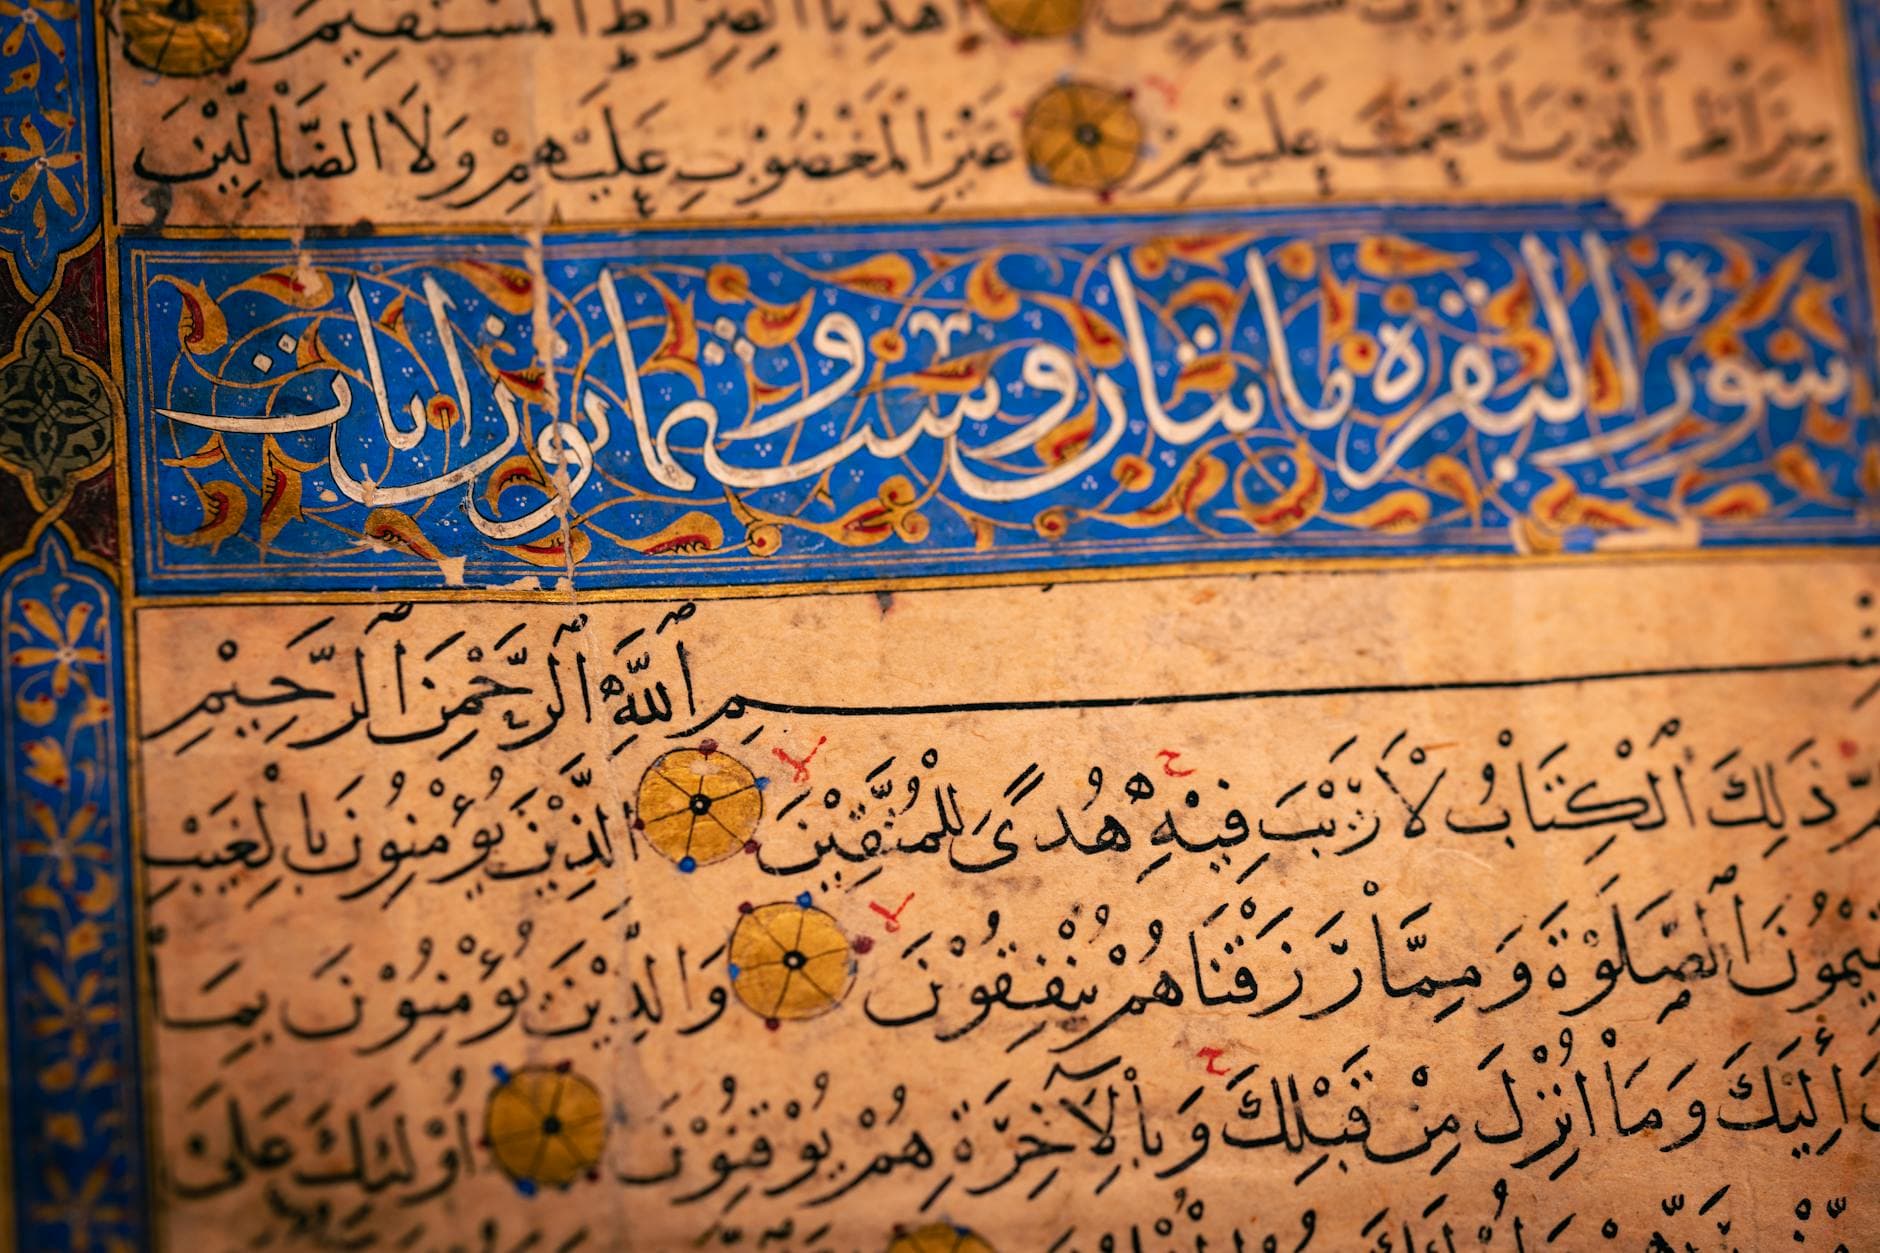 اهْدِنَا الصِّرَاطَ الْمُسْتَقِيمَ
صِرَاطَ الَّذِينَ أَنْعَمْتَ عَلَيْهِمْ غَيْرِ الْمَغْضُوْبِ عَلَيْهِمْ وَلَا الضَّالِّيْنَ
سورة البقرة مائتان وست وثمانون آيات
بِسْمِ ٱللَّهِ ٱلرَّحْمٰنِ ٱلرَّحِيْمِ
ذٰلِكَ ٱلْكِتَابُ لَا رَيْبَ فِيْهِ هُدًى لِلْمُتَّقِيْنَ الَّذِيْنَ يُؤْمِنُونَ بِالْغَيْبِ
ٱلصَّلٰوةَ وَمِمَّا رَزَقْنَاهُمْ يُنْفِقُوْنَ وَالَّذِيْنَ يُؤْمِنُوْنَ بِمَا
إِلَيْكَ وَمَا أُنْزِلَ مِنْ قَبْلِكَ وَبِالْآخِرَةِ هُمْ يُوْقِنُوْنَ أُوْلٰئِكَ عَلٰى